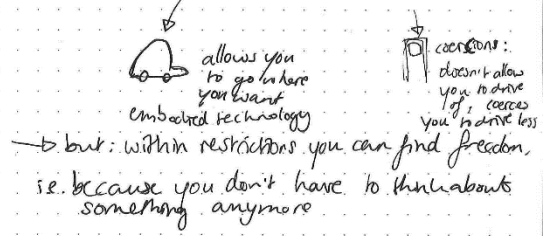 allows you
to go where
you want
embodied technology
coercions:
doesn't allow
you to drive
of, coerces
you to drive less
→ but: within restrictions you can find freedom,
i.e. because you don't have to think about
something anymore